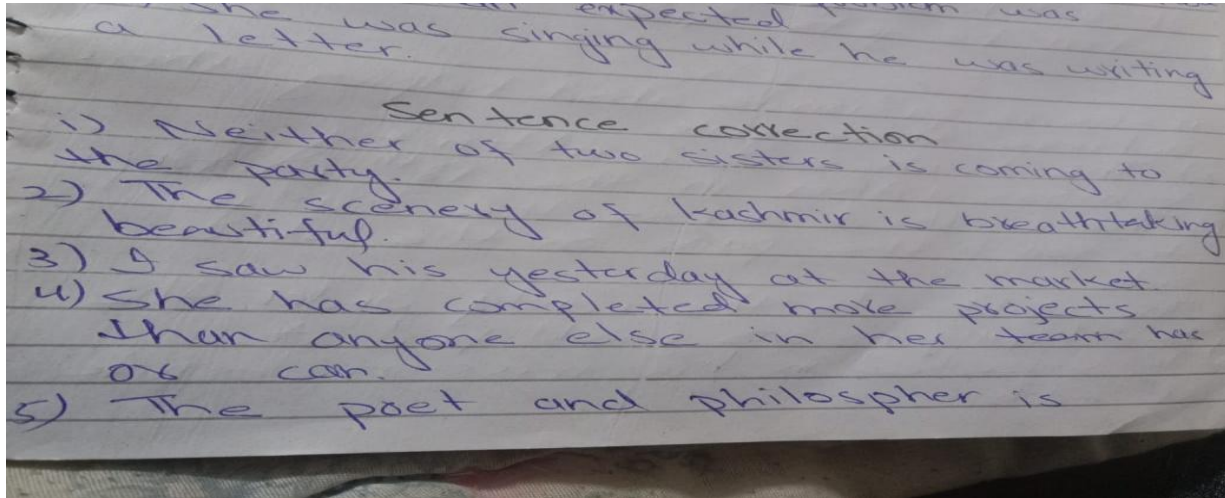 She expected was
a letter. was singing while he was writing
Sentence correction
1) Neither of two sisters is coming to
the party.
2) The scenery of Kashmir is breathtaking
beautiful.
3) I saw his yesterday at the market
4) She has completed more projects
than anyone else in her team has
or can.
5) The poet and philospher is